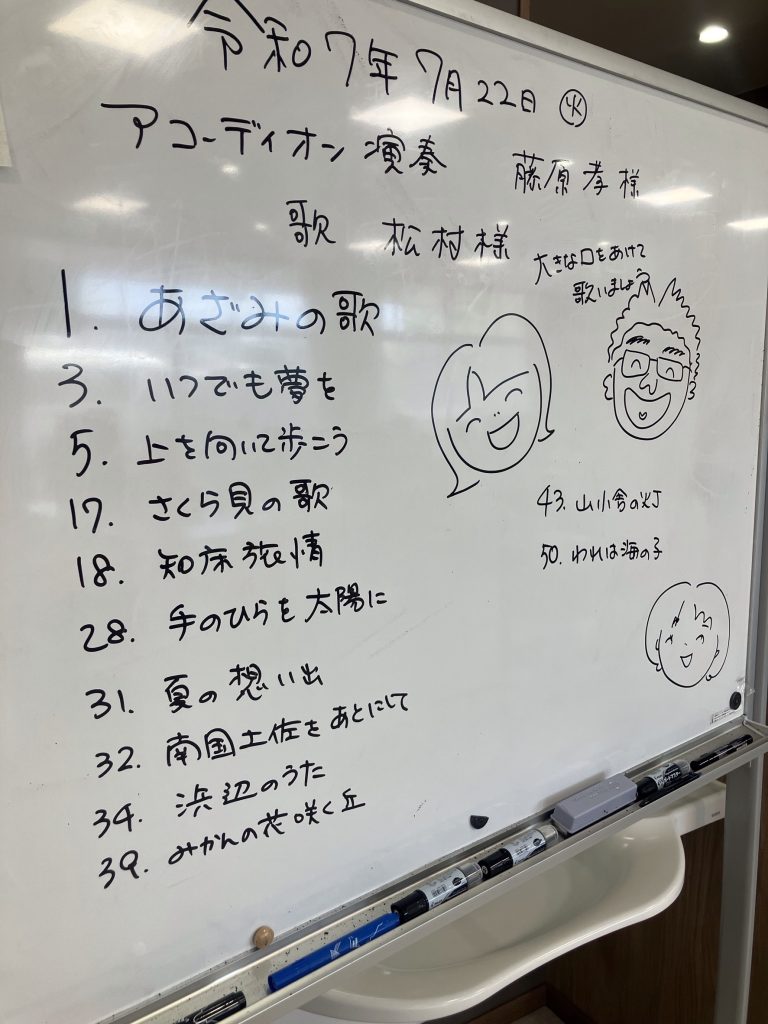 令和7年7月22日 ㊋
アコーディオン演奏 藤原孝様
歌 松村様
大きな口をあけて
歌いましょう
1. あざみの歌
3. いつでも夢を
5. 上を向いて歩こう
17. さくら貝の歌
18. 知床旅情
28. 手のひらを太陽に
31. 夏の想い出
32. 南国土佐をあとにして
34. 浜辺のうた
39. みかんの花咲く丘
43. 山小舎の灯
50. われは海の子